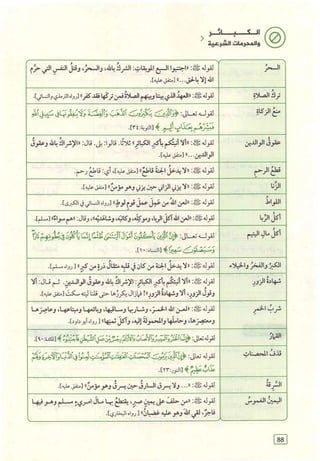 الكبائر
والمحرمات الشرعية
السحرُ
لقوله ﷺ: «اجتنبوا السبع الموبقات: الشركُ بالله، والسحرُ، وقتلُ النفسِ التي حرَّم
الله إلا بالحق...» [متفق عليه].
تركُ الصلاةِ
لقوله ﷺ: «العهدُ الذي بيننا وبينهم الصلاةُ فمن تركها فقد كفر» [رواه الترمذي والنسائي].
منعُ الزكاةِ
لقوله تعالى: ﴿وَالَّذِينَ يَكْنِزُونَ الذَّهَبَ وَالْفِضَّةَ وَلَا يُنفِقُونَهَا فِي سَبِيلِ اللَّهِ
فَبَشِّرْهُم بِعَذَابٍ أَلِيمٍ﴾ [التوبة: ٣٤].
عقوقُ الوالدينِ
لقوله ﷺ: «ألا أنبئُكم بأكبرِ الكبائرِ» ثلاثًا. قالوا: بلى. قال: «الإشراكُ بالله وعقوقُ
الوالدين...» [متفق عليه].
قطعُ الرحمِ
لقوله ﷺ: «لا يدخلُ الجنةَ قاطعٌ» [متفق عليه]، أي: قاطعُ رحمٍ.
الزِّنا
لقوله ﷺ: «لا يزني الزاني حين يزني وهو مؤمنٌ» [متفق عليه].
اللواطُ
لقوله ﷺ: «لعن اللهُ من عَمِلَ عملَ قومِ لوطٍ» [رواه النسائي في الكبرى].
أكلُ الرِّبا
لقوله ﷺ: «لعن اللهُ آكلَ الربا، وموكِلَه، وكاتبَه، وشاهدَيْه»، وقال: «هم سواءٌ» [مسلم].
أكلُ مالِ اليتيمِ
لقوله تعالى: ﴿إِنَّ الَّذِينَ يَأْكُلُونَ أَمْوَالَ الْيَتَامَىٰ ظُلْمًا إِنَّمَا يَأْكُلُونَ فِي بُطُونِهِمْ نَارًا
وَسَيَصْلَوْنَ سَعِيرًا﴾ [النساء: ١٠].
الكبرُ والفخرُ والخيلاء
لقوله ﷺ: «لا يدخلُ الجنةَ من كان في قلبِه مثقالُ ذرةٍ من كبرٍ» [رواه مسلم].
شهادةُ الزورِ
لقوله ﷺ: «ألا أنبئُكم بأكبرِ الكبائرِ: الإشراكُ بالله وعقوقُ الوالدين. ثم قال: ألا
وقولُ الزورِ، ألا وشهادةُ الزورِ»؛ فما زال يكررُها حتى قلنا ليته سكت [متفق عليه].
شربُ الخمرِ
لقوله ﷺ: «لعن اللهُ الخمرَ، وشاربَها وساقيَها، وبائعَها ومبتاعَها، وعاصرَها
ومعتصرَها، وحاملَها والمحمولةَ إليه، وآكلَ ثمنِها» [رواه أبو داود].
القمارُ
لقوله تعالى: [المائدة: ٩٠].
قذفُ المحصناتِ
لقوله تعالى: ﴿إِنَّ الَّذِينَ يَرْمُونَ الْمُحْصَنَاتِ الْغَافِلَاتِ الْمُؤْمِنَاتِ لُعِنُوا فِي الدُّنْيَا وَالْآخِرَةِ وَلَهُمْ
عَذَابٌ عَظِيمٌ﴾ [النور: ٢٣].
السرقةُ
لقوله ﷺ: «... ولا يسرقُ السارقُ حين يسرقُ وهو مؤمنٌ» [متفق عليه].
اليمينُ الغموسُ
لقوله ﷺ: «من حلفَ على يمينِ صبرٍ، يقتطعُ بها مالَ امرئٍ مسلمٍ وهو فيها
فاجرٌ، لقي اللهَ وهو عليه غضبانُ» [رواه البخاري].
88